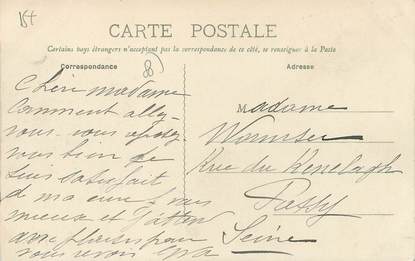 CARTE POSTALE
Certains pays étrangers n'acceptant pas la correspondance de ce côté, se renseigner à la Poste
Correspondance
Adresse
Chère madame
Comment allez
vous. vous reposez
vous bien je
suis satisfait
de ma cure. vais
mieux et j'attend
avec plaisir pour
vous revoir
Madame
Wormser
Rue du Renelagh
Passy
Seine